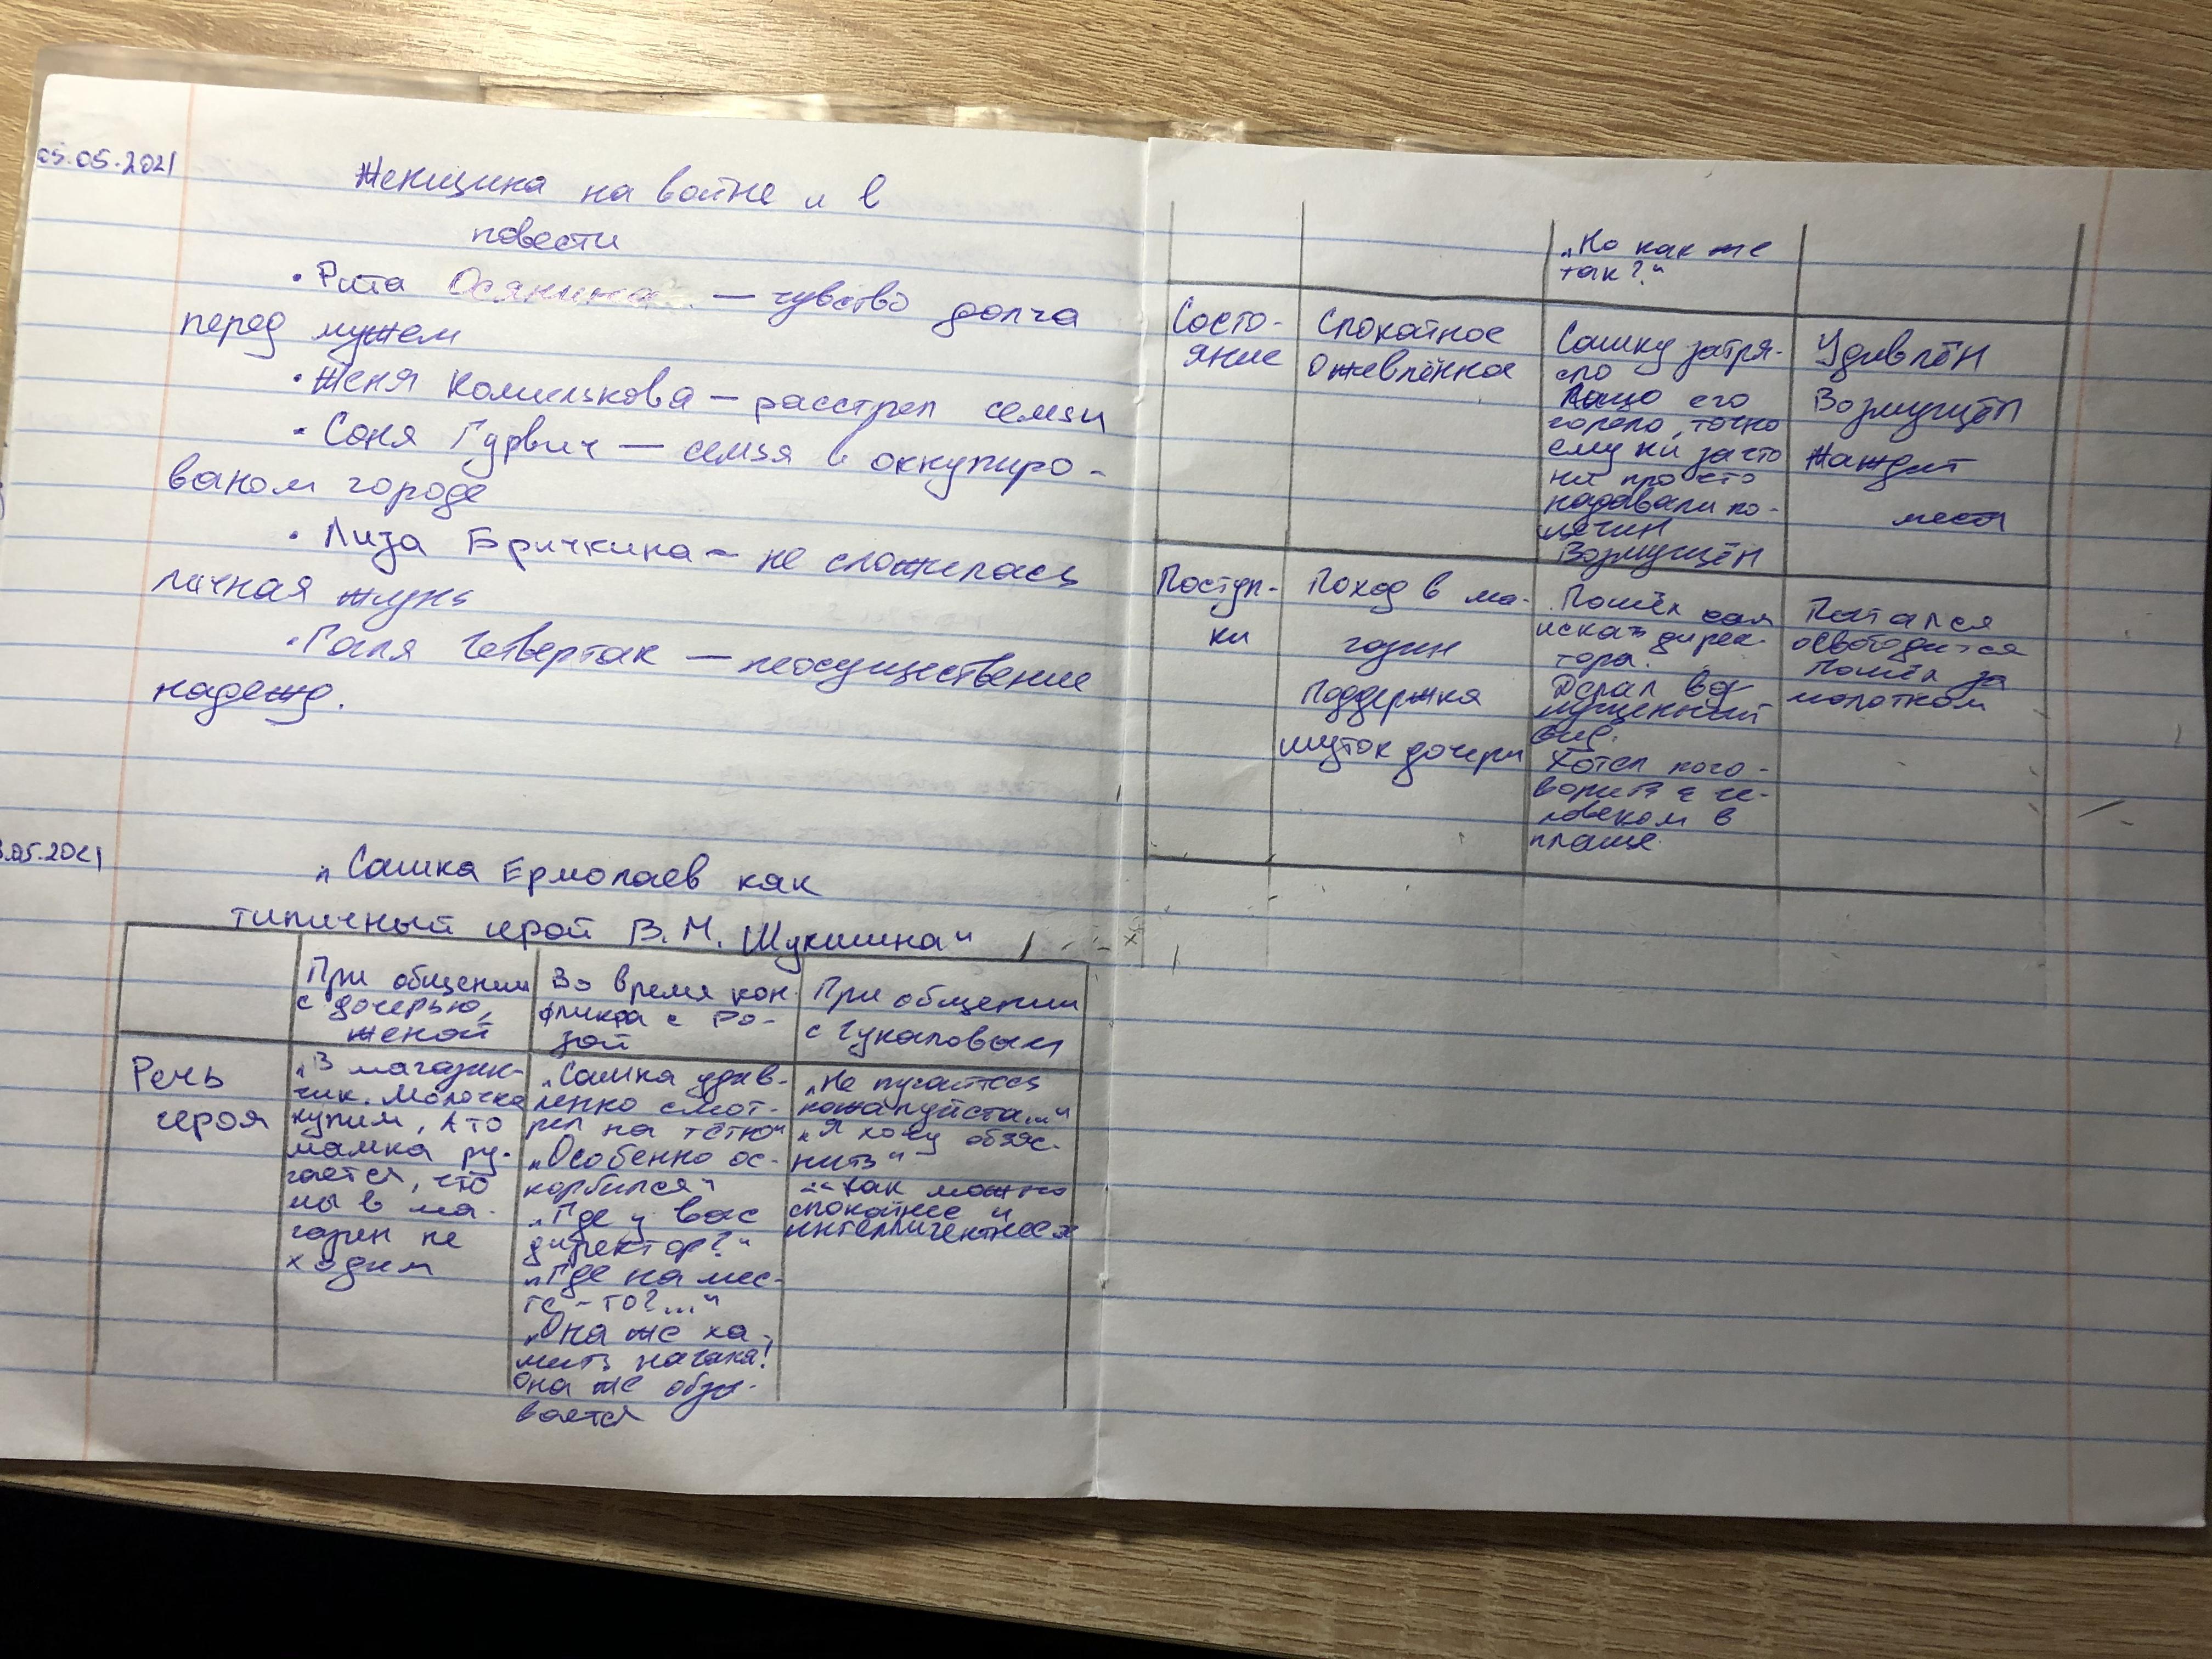 05.05.2021
Женщина на войне и в
повести
• Рита Осянина — чувство долга
перед мужем
• Женя Комелькова — расстрел семьи
• Соня Гурвич — семья в оккупиро-
ваном городе
• Лиза Бричкина — не сложилась
личная жизнь
• Галя Четвертак — неосуществение
надежд.
.05.2021
„Сашка Ермолаев как
типичный герой В. М. Шукшина“
При общении
с дочерью,
женой
Во время кон-
фликта с Ро-
зой
При общении
с Чукаловым
Речь
героя
„В магазин-
чик. Молочка
купим, а то
мамка ру-
гается, что
мы в ма-
газин не
ходим
„Сашка удив-
ленно смот-
рел на тётю“
„Особенно ос-
корбился“
„Где у вас
директор?“
„Где на мес-
те-то?...“
„Она же ха-
мить начала!
Она же обзы-
вается
„Не пугайтесь
пожалуйста...“
„Я хочу объяс-
нить“
„как можно
спокойнее и
интеллигентнее“
„Но как же
так?“
Состо-
яние
Спокойное
Оживлённое
Сашку затря-
сло
Лицо его
горело, точно
ему ни за что
ни про что
надавали по-
щечин
Возмущён
Удивлён
Возмущён
Жаждит
мести
Поступ-
ки
Поход в ма-
газин
Поддержка
шуток дочери
Пошёл сам
искать дирек-
тора.
Делал воз-
мущенный
вид.
Хотел пого-
ворить с че-
ловеком в
плаще
Питался
освободится
Пошёл за
молотком